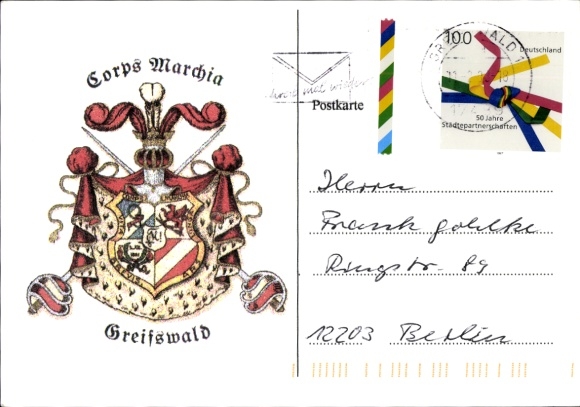 Corps Marchia
Greifswald
Postkarte
100
Deutschland
50 Jahre
Städtepartnerschaften
Herrn
Frank Gohlke
Ringstr. 89
12203 Berlin